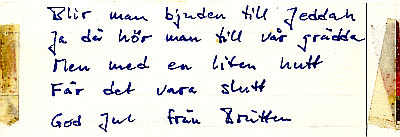 Blir man bjuden till Jeddah
Ja då hör man till vår grädda
Men med en liten hutt
Får det vara slutt
God Jul från Britten